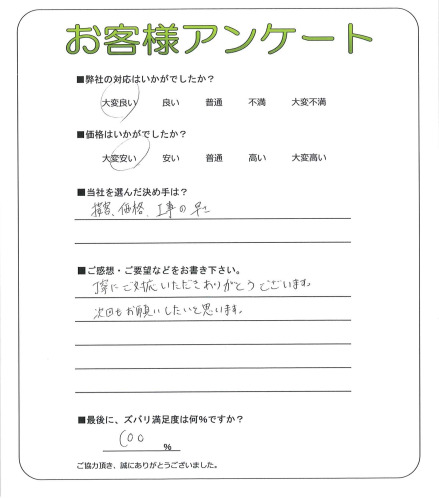 お客様アンケート
■弊社の対応はいかがでしたか?
大変良い 良い 普通 不満 大変不満
■価格はいかがでしたか?
大変安い 安い 普通 高い 大変高い
■当社を選んだ決め手は?
接客、価格、工事の早さ
■ご感想・ご要望などをお書き下さい。
丁寧にご対応いただきありがとうございます。
次回もお願いしたいと思います。
■最後に、ズバリ満足度は何%ですか?
100 %
ご協力頂き、誠にありがとうございました。